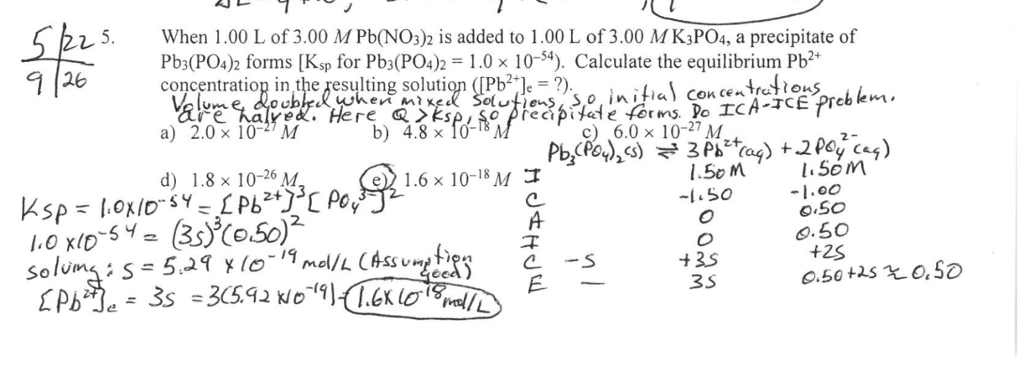 5/22
9/26
5. When 1.00 L of 3.00 M Pb(NO3)2 is added to 1.00 L of 3.00 M K3PO4, a precipitate of
Pb3(PO4)2 forms [Ksp for Pb3(PO4)2 = 1.0 × 10⁻⁵⁴). Calculate the equilibrium Pb²⁺
concentration in the resulting solution ([Pb²⁺]e = ?).
Volume doubled when mixed solutions, so initial concentrations
are halved. Here Q > Ksp, so precipitate forms. Do ICA-ICE problem.
a) 2.0 × 10⁻²⁷ M b) 4.8 × 10⁻¹⁸ M c) 6.0 × 10⁻²⁷ M
Pb₃(PO₄)₂(s) ⇌ 3Pb²⁺(aq) + 2PO₄²⁻(aq)
d) 1.8 × 10⁻²⁶ M e) 1.6 × 10⁻¹⁸ M
I 1.50M 1.50M
C -1.50 -1.00
A 0 0.50
I 0 0.50
C -s +3s +2s
E — 3s 0.50+2s ≈ 0.50
Ksp = 1.0x10⁻⁵⁴ = [Pb²⁺]³[PO₄³⁻]²
1.0 x10⁻⁵⁴ = (3s)³(0.50)²
solving: s = 5.29 x10⁻¹⁹ mol/L (Assumption good)
[Pb²⁺]e = 3s = 3(5.92 x10⁻¹⁹) = 1.6x10⁻¹⁸ mol/L